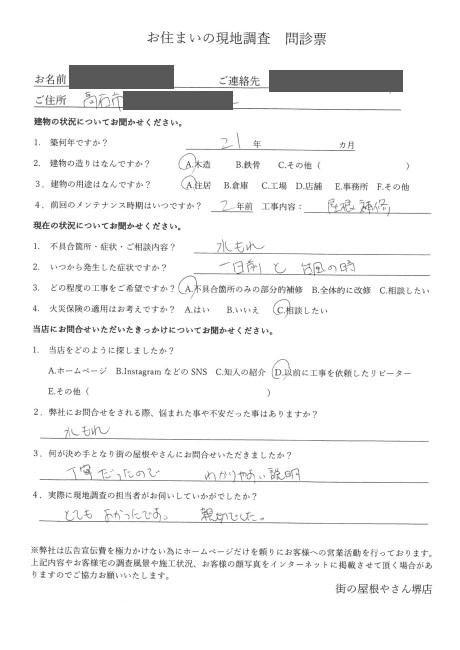 お住まいの現地調査　問診票
お名前　ご連絡先
ご住所　高石市
建物の状況についてお聞かせください。
1. 築何年ですか？　21 年　カ月
2. 建物の造りはなんですか？　A.木造　B.鉄骨　C.その他（　）
3. 建物の用途はなんですか？　A.住居　B.倉庫　C.工場　D.店舗　E.事務所　F.その他
4. 前回のメンテナンス時期はいつですか？　2 年前　工事内容：　屋根補修
現在の状況についてお聞かせください。
1. 不具合箇所・症状・ご相談内容？　水もれ
2. いつから発生した症状ですか？　一日前と台風の時
3. どの程度の工事をご希望ですか？　A.不具合箇所のみの部分的補修　B.全体的に改修　C.相談したい
4. 火災保険の適用はお考えですか？　A.はい　B.いいえ　C.相談したい
当店にお問合せいただいたきっかけについてお聞かせください。
1. 当店をどのように探しましたか？
A.ホームページ　B.Instagram などの SNS　C.知人の紹介　D.以前に工事を依頼したリピーター
E.その他（　）
2. 弊社にお問合せをされる際、悩まれた事や不安だった事はありますか？
水もれ
3. 何が決め手となり街の屋根やさんにお問合せいただきましたか？
丁寧だったので　わかりやすい説明
4. 実際に現地調査の担当者がお伺いしていかがでしたか？
とても よかったです。　親切でした。
※弊社は広告宣伝費を極力かけない為にホームページだけを頼りにお客様への営業活動を行っております。
上記内容やお客様宅の調査風景や施工状況、お客様の顔写真をインターネットに掲載させて頂く場合があ
りますのでご協力お願いいたします。
街の屋根やさん堺店